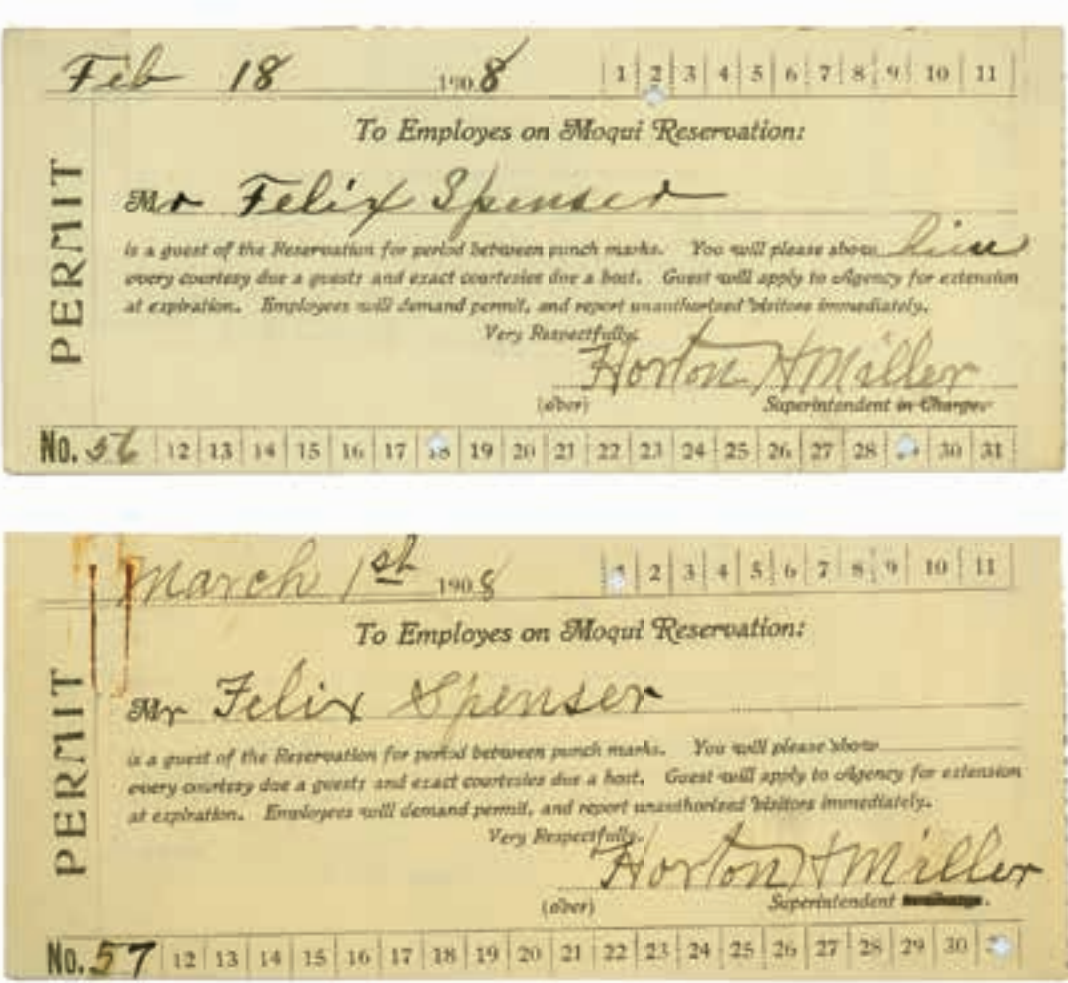 Feb 18 1908 1 2 3 4 5 6 7 8 9 10 11
To Employes on Moqui Reservation:
PERMIT
Mr Felix Spenser
is a guest of the Reservation for period between punch marks. You will please show him
every courtesy due a guests and exact courtesies due a host. Guest will apply to Agency for extension
at expiration. Employees will demand permit, and report unauthorized visitors immediately.
Very Respectfully,
Horton H Miller
(over) Superintendent in Charge.
No. 56 12 13 14 15 16 17 18 19 20 21 22 23 24 25 26 27 28 30 31
March 1st 1908 1 2 3 4 5 6 7 8 9 10 11
To Employes on Moqui Reservation:
PERMIT
Mr Felix Spenser
is a guest of the Reservation for period between punch marks. You will please show
every courtesy due a guests and exact courtesies due a host. Guest will apply to Agency for extension
at expiration. Employees will demand permit, and report unauthorized visitors immediately.
Very Respectfully,
Horton H Miller
(over) Superintendent
No. 57 12 13 14 15 16 17 18 19 20 21 22 23 24 25 26 27 28 29 30